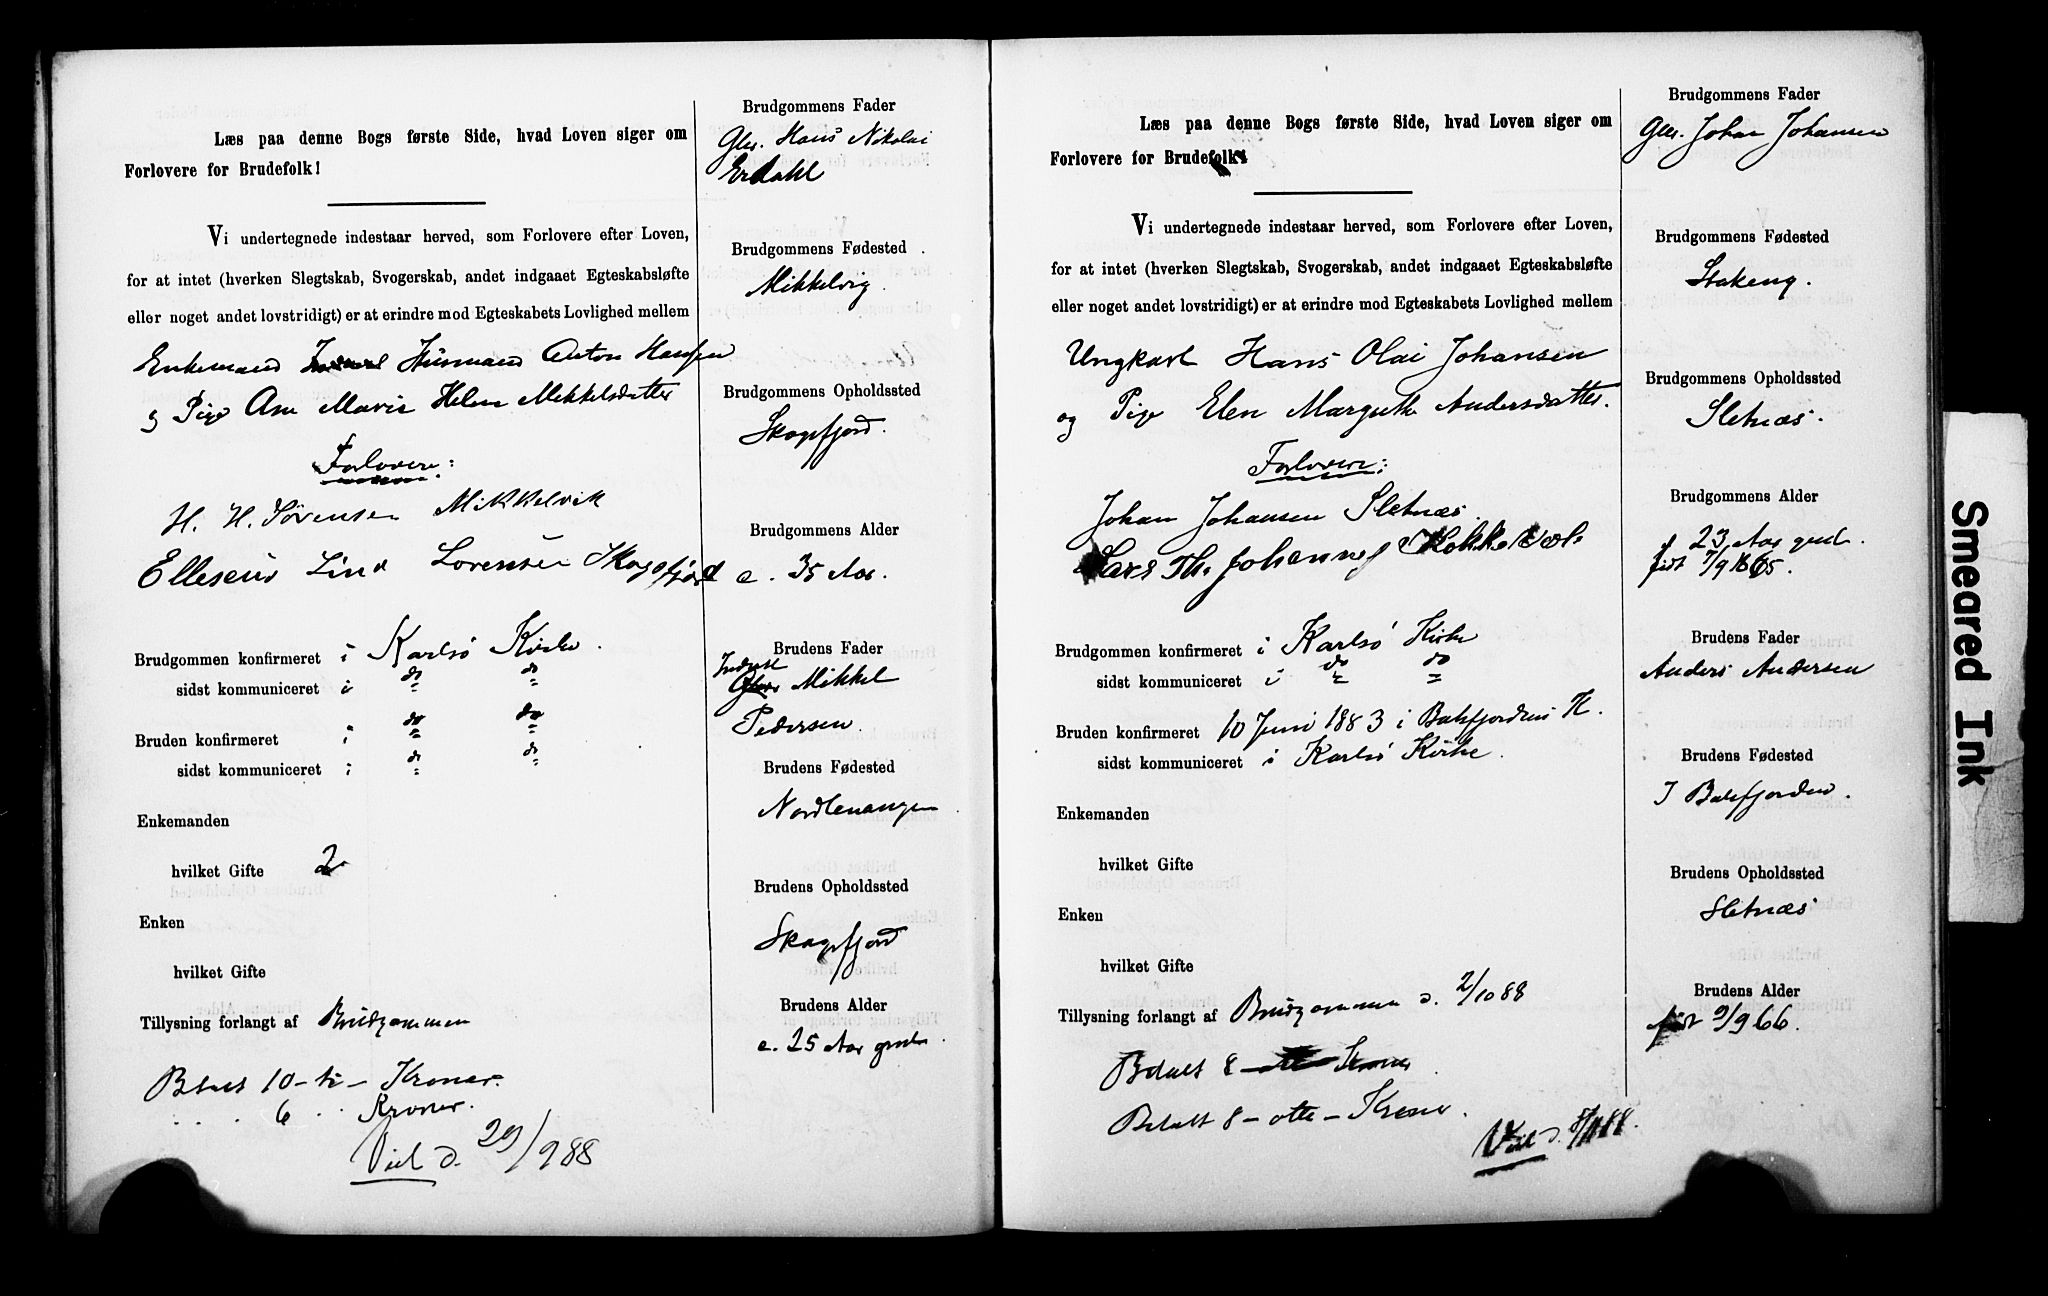 Læs paa denne Bogs første Side, hvad Loven siger om
Forlovere for Brudefolk!
Vi undertegnede indestaar herved, som Forlovere efter Loven,
for at intet (hverken Slegtskab, Svogerskab, andet indgaaet Egteskabsløfte
eller noget andet lovstridigt) er at erindre mod Egteskabets Lovlighed mellem
Enkemand Husmand Anton Hansen
og Pige Ane Marie Helene Mikkelsdatter
Forlovere:
H. H. Sørensen Mikkelvik
Elleseus Lind Lorensen Skogsfjord
Brudgommen konfirmeret i Karlsø Kirke.
sidst kommuniceret i do do
Bruden konfirmeret i do do
sidst kommuniceret i do do
Enkemanden
hvilket Gifte 2
Enken
hvilket Gifte
Tillysning forlangt af Brudgommen
Betalt 10 - ti - Kroner.
. . . 6 . . Kroner.
Viel d. 29/9 88
Brudgommens Fader
Gbr. Hans Nikolai
Erdahl
Brudgommens Fødested
Mikkelvig.
Brudgommens Opholdssted
Skogsfjord.
Brudgommens Alder
c. 35 Aar.
Brudens Fader
Inderst
Mikkel
Pedersen.
Brudens Fødested
Nordlenangen
Brudens Opholdssted
Skogsfjord
Brudens Alder
c. 25 Aar gml.
Læs paa denne Bogs første Side, hvad Loven siger om
Forlovere for Brudefolk!
Vi undertegnede indestaar herved, som Forlovere efter Loven,
for at intet (hverken Slegtskab, Svogerskab, andet indgaaet Egteskabsløfte
eller noget andet lovstridigt) er at erindre mod Egteskabets Lovlighed mellem
Ungkarl Hans Olai Johansen
og Pige Elen Margrethe Andersdatter.
Forlovere:
Johan Johansen Sletnæs.
Lars Th. Johannes
Brudgommen konfirmeret i Karlsø Kirke
sidst kommuniceret i do do
Bruden konfirmeret 10 Juni 1883 i Balsfjordens K.
sidst kommuniceret i Karlsø Kirke.
Enkemanden
hvilket Gifte
Enken
hvilket Gifte
Tillysning forlangt af Brudgommen d. 2/10 88
Betalt 8 - otte Kroner
Betalt 8 - otte - Kroner.
Viel d.
Brudgommens Fader
Gbr. Johan Johansen
Brudgommens Fødested
Stakeng.
Brudgommens Opholdssted
Sletnæs.
Brudgommens Alder
23 Aar gml.
født 7/9 1865.
Brudens Fader
Anders Andersen
Brudens Fødested
I Balsfjorden.
Brudens Opholdssted
Sletnæs
Brudens Alder
født 9/9 66.
Smeared Ink